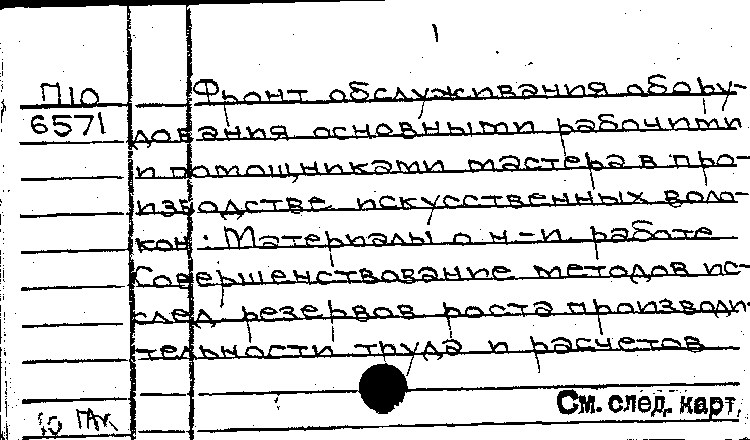 1
П10 Фронт обслуживания обору-
6571 дования основными рабочими
и помощниками мастера в про-
изводстве искусственных воло-
кон: Материалы о н-и. работе
Совершенствование методов ис-
след. резервов роста производи-
тельности труда и расчетов
См. след. карт.
10